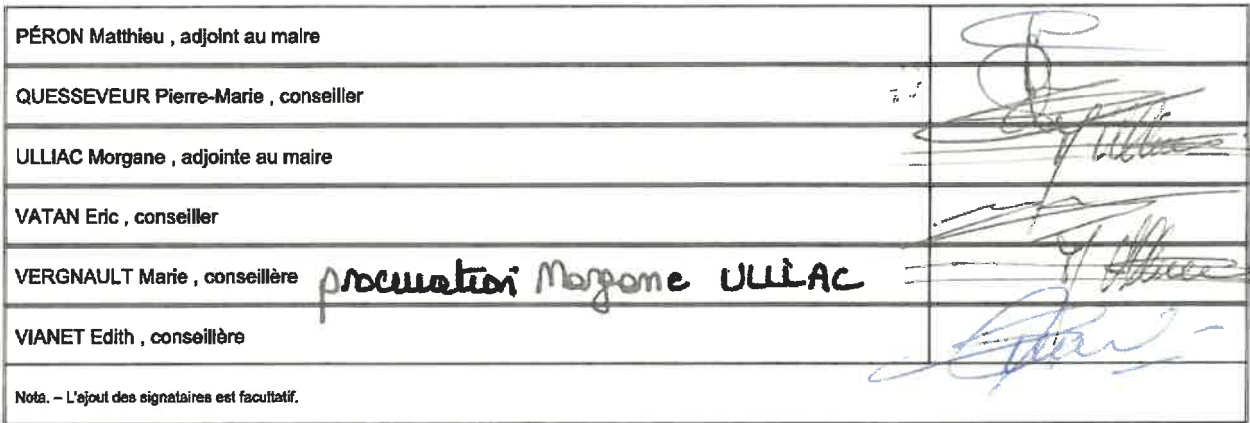 PÉRON Matthieu , adjoint au maire
QUESSEVEUR Pierre-Marie , conseiller
ULLIAC Morgane , adjointe au maire
VATAN Eric , conseiller
VERGNAULT Marie , conseillère procuration Morgane ULLIAC
VIANET Edith , conseillère
Nota. – L'ajout des signataires est facultatif.